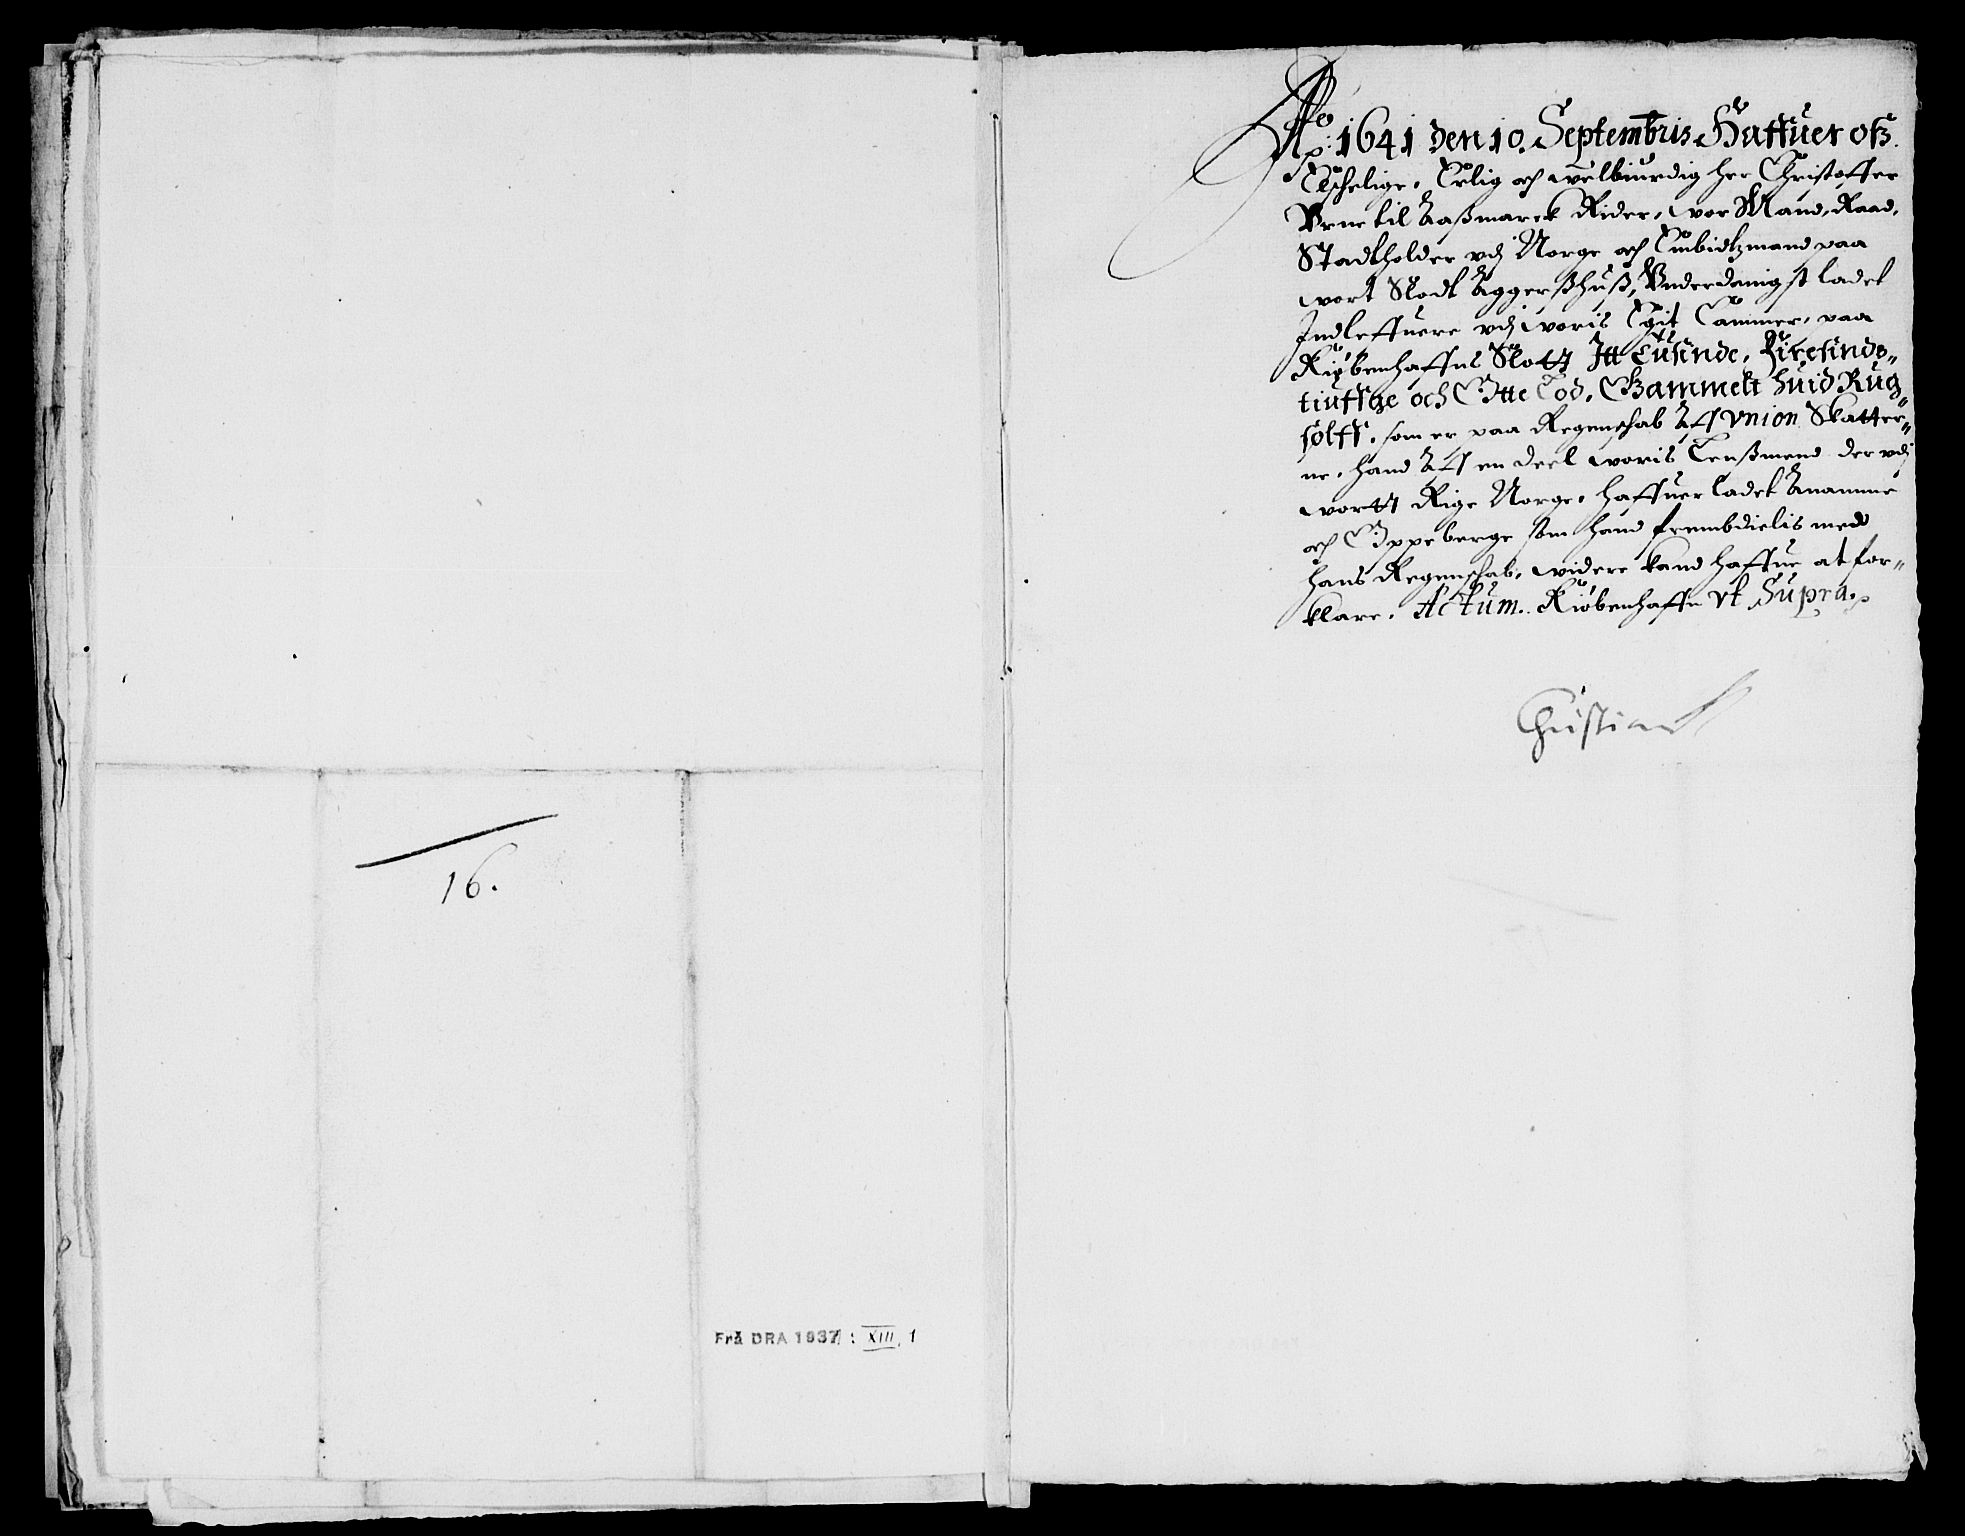 16.
Frå DRA 1937 : XIII, 1
Ao: 1641 den 10. Septembris Haffuer oss
Elschelige, Erlig och welbiurdig her Christoffer
Vrne til Aaßmarck Rider, wor Mand, Raad,
Stadtholder vdj Norge och Embidtzmand paa
wort Slodt Aggerßhuß, Vnderdanigst ladet
Indleffuere vdj woris Egit Cammer, paa
Kiøbenhaffns Slott Itt Tusinde, Firesinds-
tiuffge och Otte Lod, Gammelt huid Rug
sølff, som er paa Regenschab Aff vnion Skatter-
ne, hand Aff en deel woris Lenßmend der vdj
wortt Rige Norge, haffuer ladet Anamme
och Oppeberge som hand frembdielis med
hans Regenschab, widere kand haffue at for-
klare. Actum. Kiøbenhaffn vt Supra.
Christian